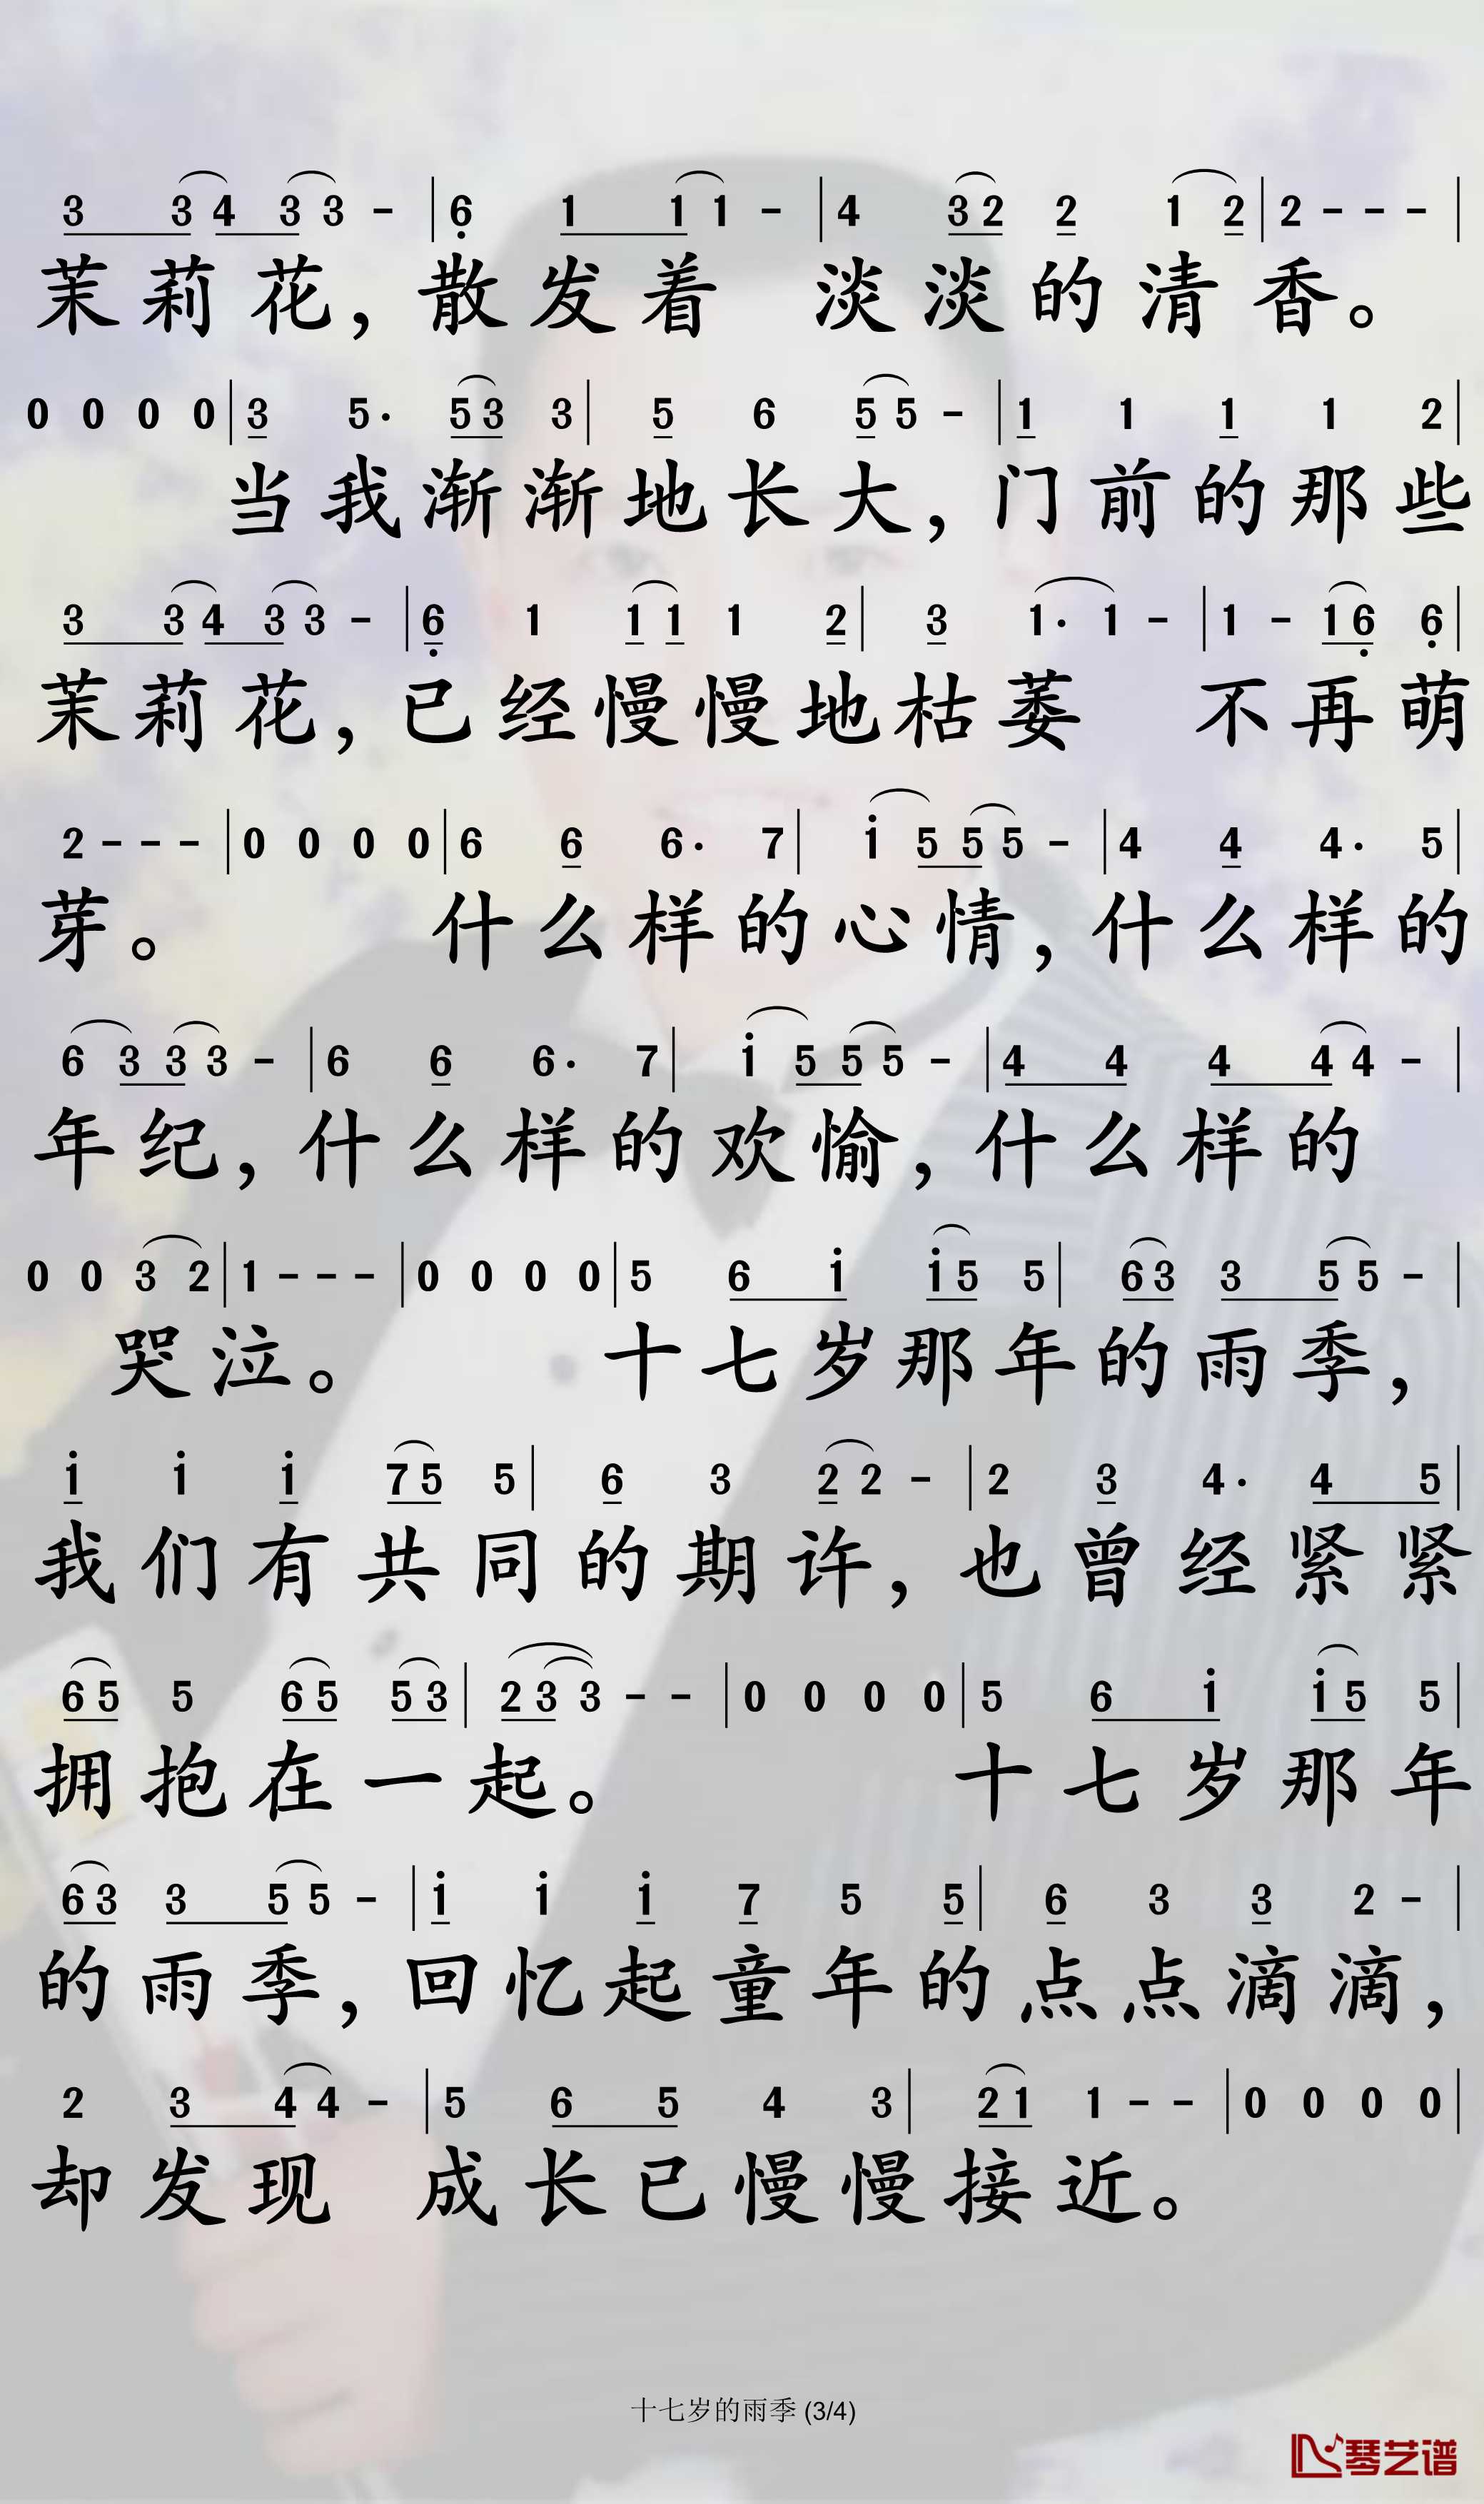 3 3 4 3 3 - | 6 1 1 1 - | 4 3 2 2 1 2 | 2 - - - |
茉莉花，散发着 淡淡的清香。
0 0 0 0 | 3 5· 5 3 3 | 5 6 5 5 - | 1 1 1 1 2 |
当我渐渐地长大，门前的那些
3 3 4 3 3 - | 6 1 1 1 1 2 | 3 1· 1 - | 1 - 1 6 6 |
茉莉花，已经慢慢地枯萎 不再萌
2 - - - | 0 0 0 0 | 6 6 6· 7 | i 5 5 5 - | 4 4 4· 5 |
芽。 什么样的心情，什么样的
6 3 3 3 - | 6 6 6· 7 | i 5 5 5 - | 4 4 4 4 4 - |
年纪，什么样的欢愉，什么样的
0 0 3 2 | 1 - - - | 0 0 0 0 | 5 6 i i 5 5 | 6 3 3 5 5 - |
哭泣。 十七岁那年的雨季，
i i i 7 5 5 | 6 3 2 2 - | 2 3 4· 4 5 |
我们有共同的期许，也曾经紧紧
6 5 5 6 5 5 3 | 2 3 3 - - | 0 0 0 0 | 5 6 i i 5 5 |
拥抱在一起。 十七岁那年
6 3 3 5 5 - | i i i 7 5 5 | 6 3 3 2 - |
的雨季，回忆起童年的点点滴滴，
2 3 4 4 - | 5 6 5 4 3 | 2 1 1 - - | 0 0 0 0 |
却发现 成长已慢慢接近。
十七岁的雨季 (3/4)
琴艺谱